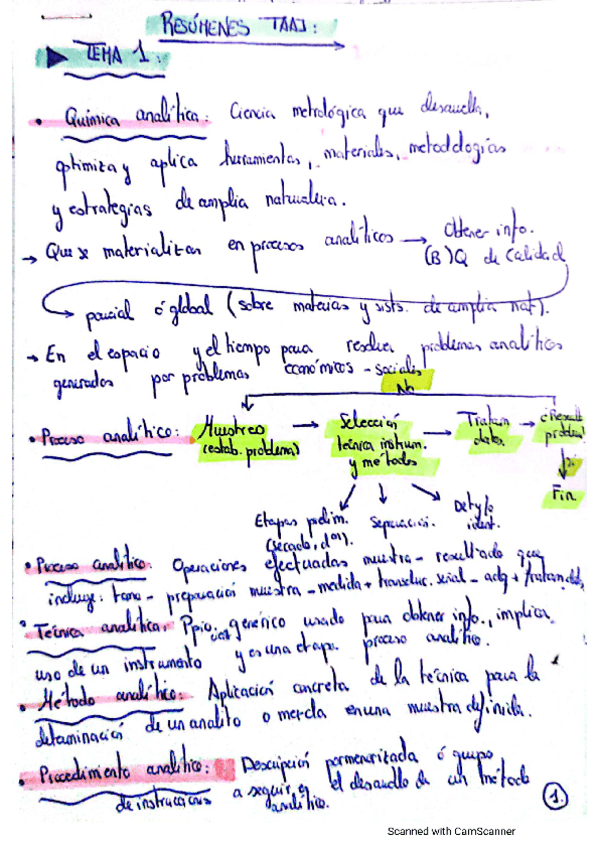 RESÚMENES TAAI:
TEMA 1:
• Química analítica: Ciencia metrológica que desarrolla,
optimiza y aplica herramientas, materiales, metodologías
y estrategias de amplia naturaleza.
→ Que se materializan en procesos analíticos → Obtener info.
(B)Q de Calidad
parcial ó global (sobre materias y sists. de amplia nat).
→ En el espacio y el tiempo para resolver problemas analíticos
generados por problemas económicos - sociales
No
• Proceso analítico: Muestreo → Selección → Tratam → ¿Result
(estab. problema) técnica instrum. datos. problema?
y métodos sí
Fin
Etapas prelim. Separación. Det y/o
(secado, don) ident.
• Proceso analítico: Operaciones efectuadas muestra - resultado que
incluye: toma - preparación muestra - medida + transduc. señal - adq + tratam datos
• Técnica analítica: Ppio. genérico usado para obtener info., implica
uso de un instrumento y es una etapa proceso analítico.
• Método analítico: Aplicación concreta de la técnica para la
determinación de un analito o mezcla en una muestra definida.
• Procedimiento analítico: Descripción pormenorizada ó grupo
de instrucciones a seguir, el desarrollo de un método
analítico.
1.
Scanned with CamScanner